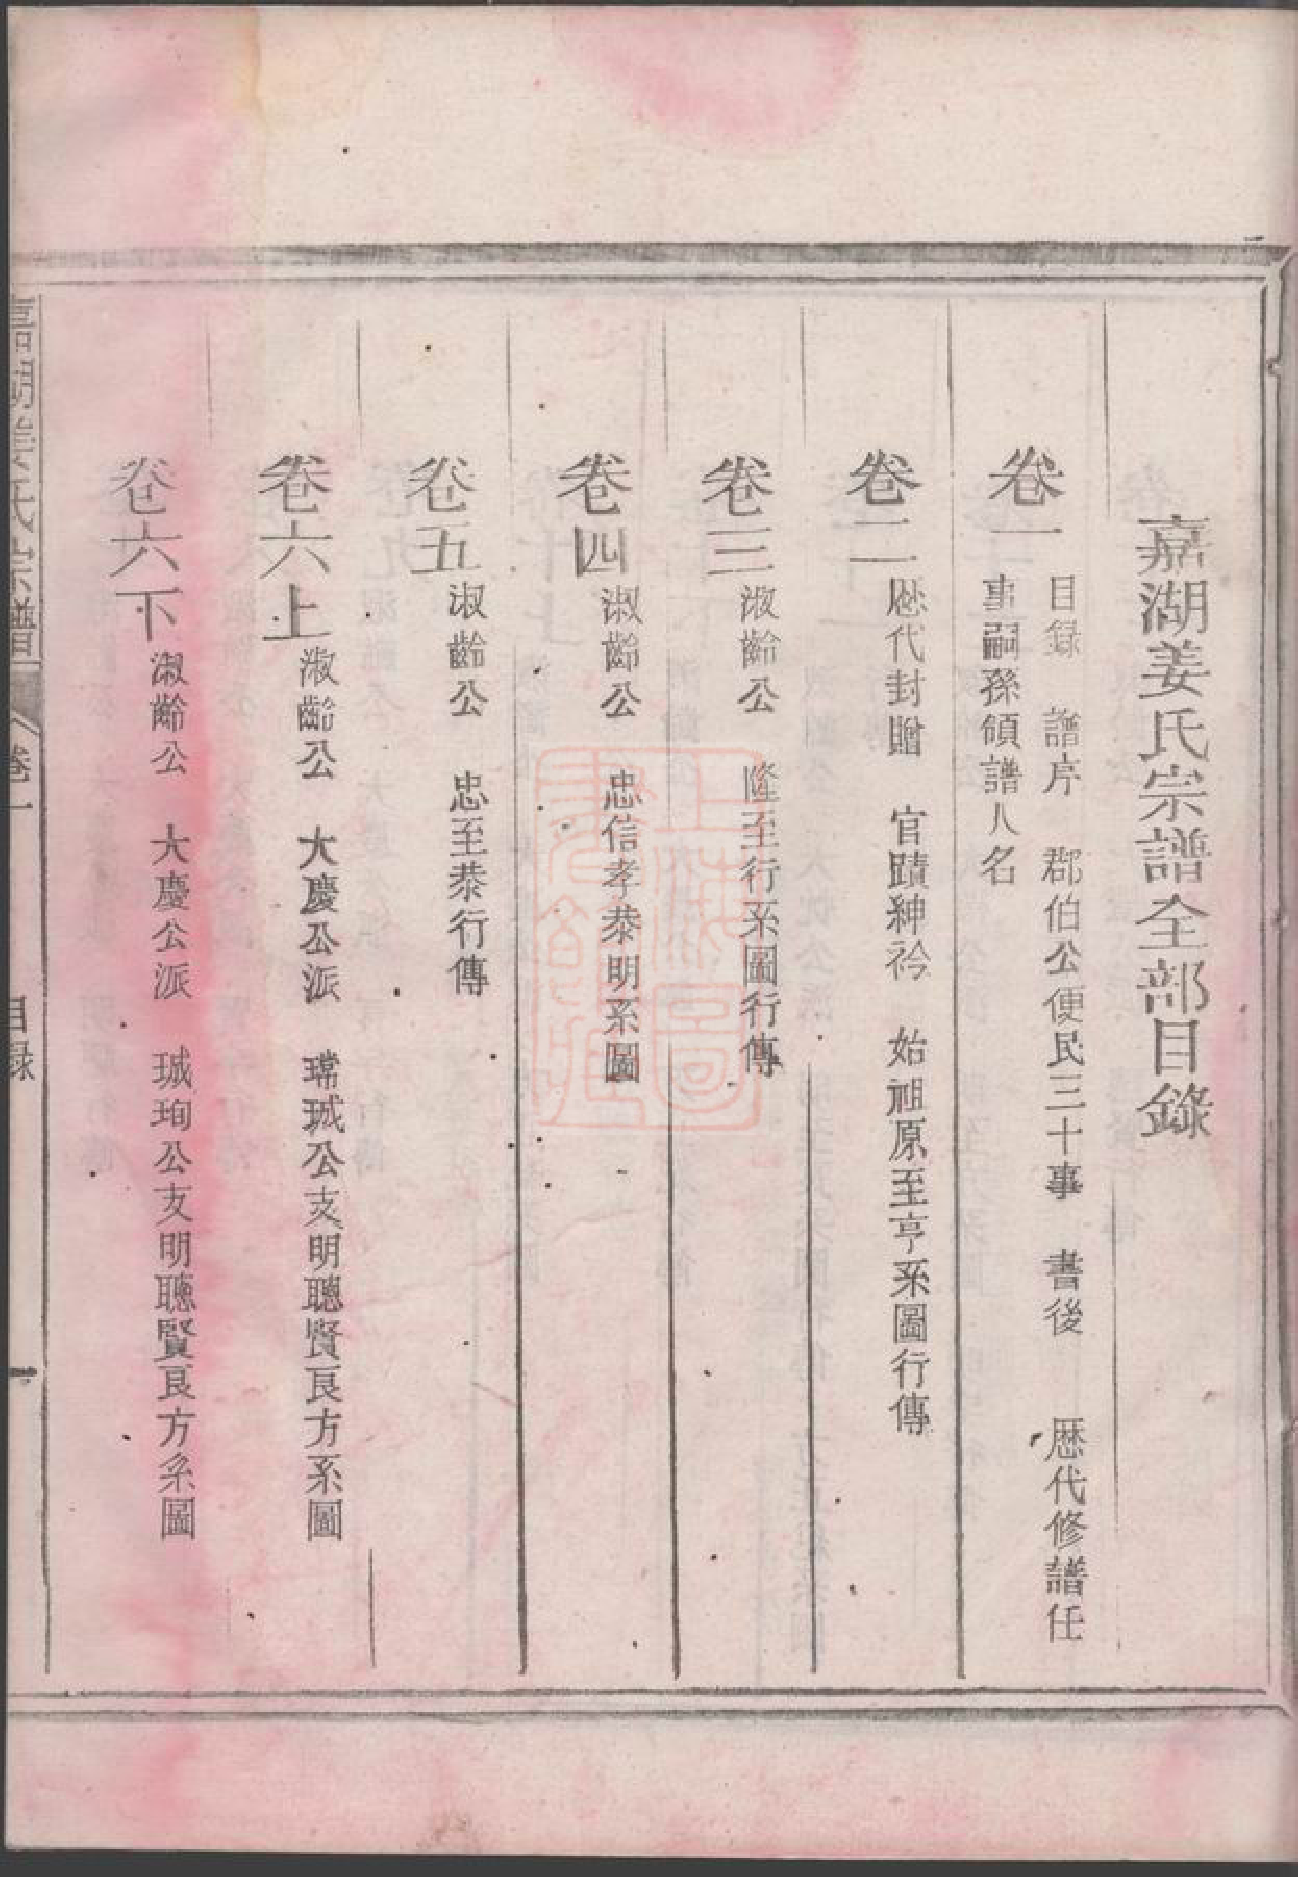 嘉湖姜氏宗譜全部目錄
卷一 目録 譜序 郡伯公便民三十事 書後 歷代修譜任
事嗣孫領譜人名
卷二 歷代封贈 官蹟紳衿 始祖原至亨系圖行傳
卷三 淑齡公 隆至行系圖行傳
卷四 淑齡公 忠信孝恭明系圖
卷五 淑齡公 忠至恭行傳
卷六上 淑齡公 大慶公派 瑺珹公支明聰賢良方系圖
卷六下 淑齡公 大慶公派 珹珣公支明聰賢良方系圖
嘉湖姜氏宗譜 卷一 目録 一
上海圖書館藏